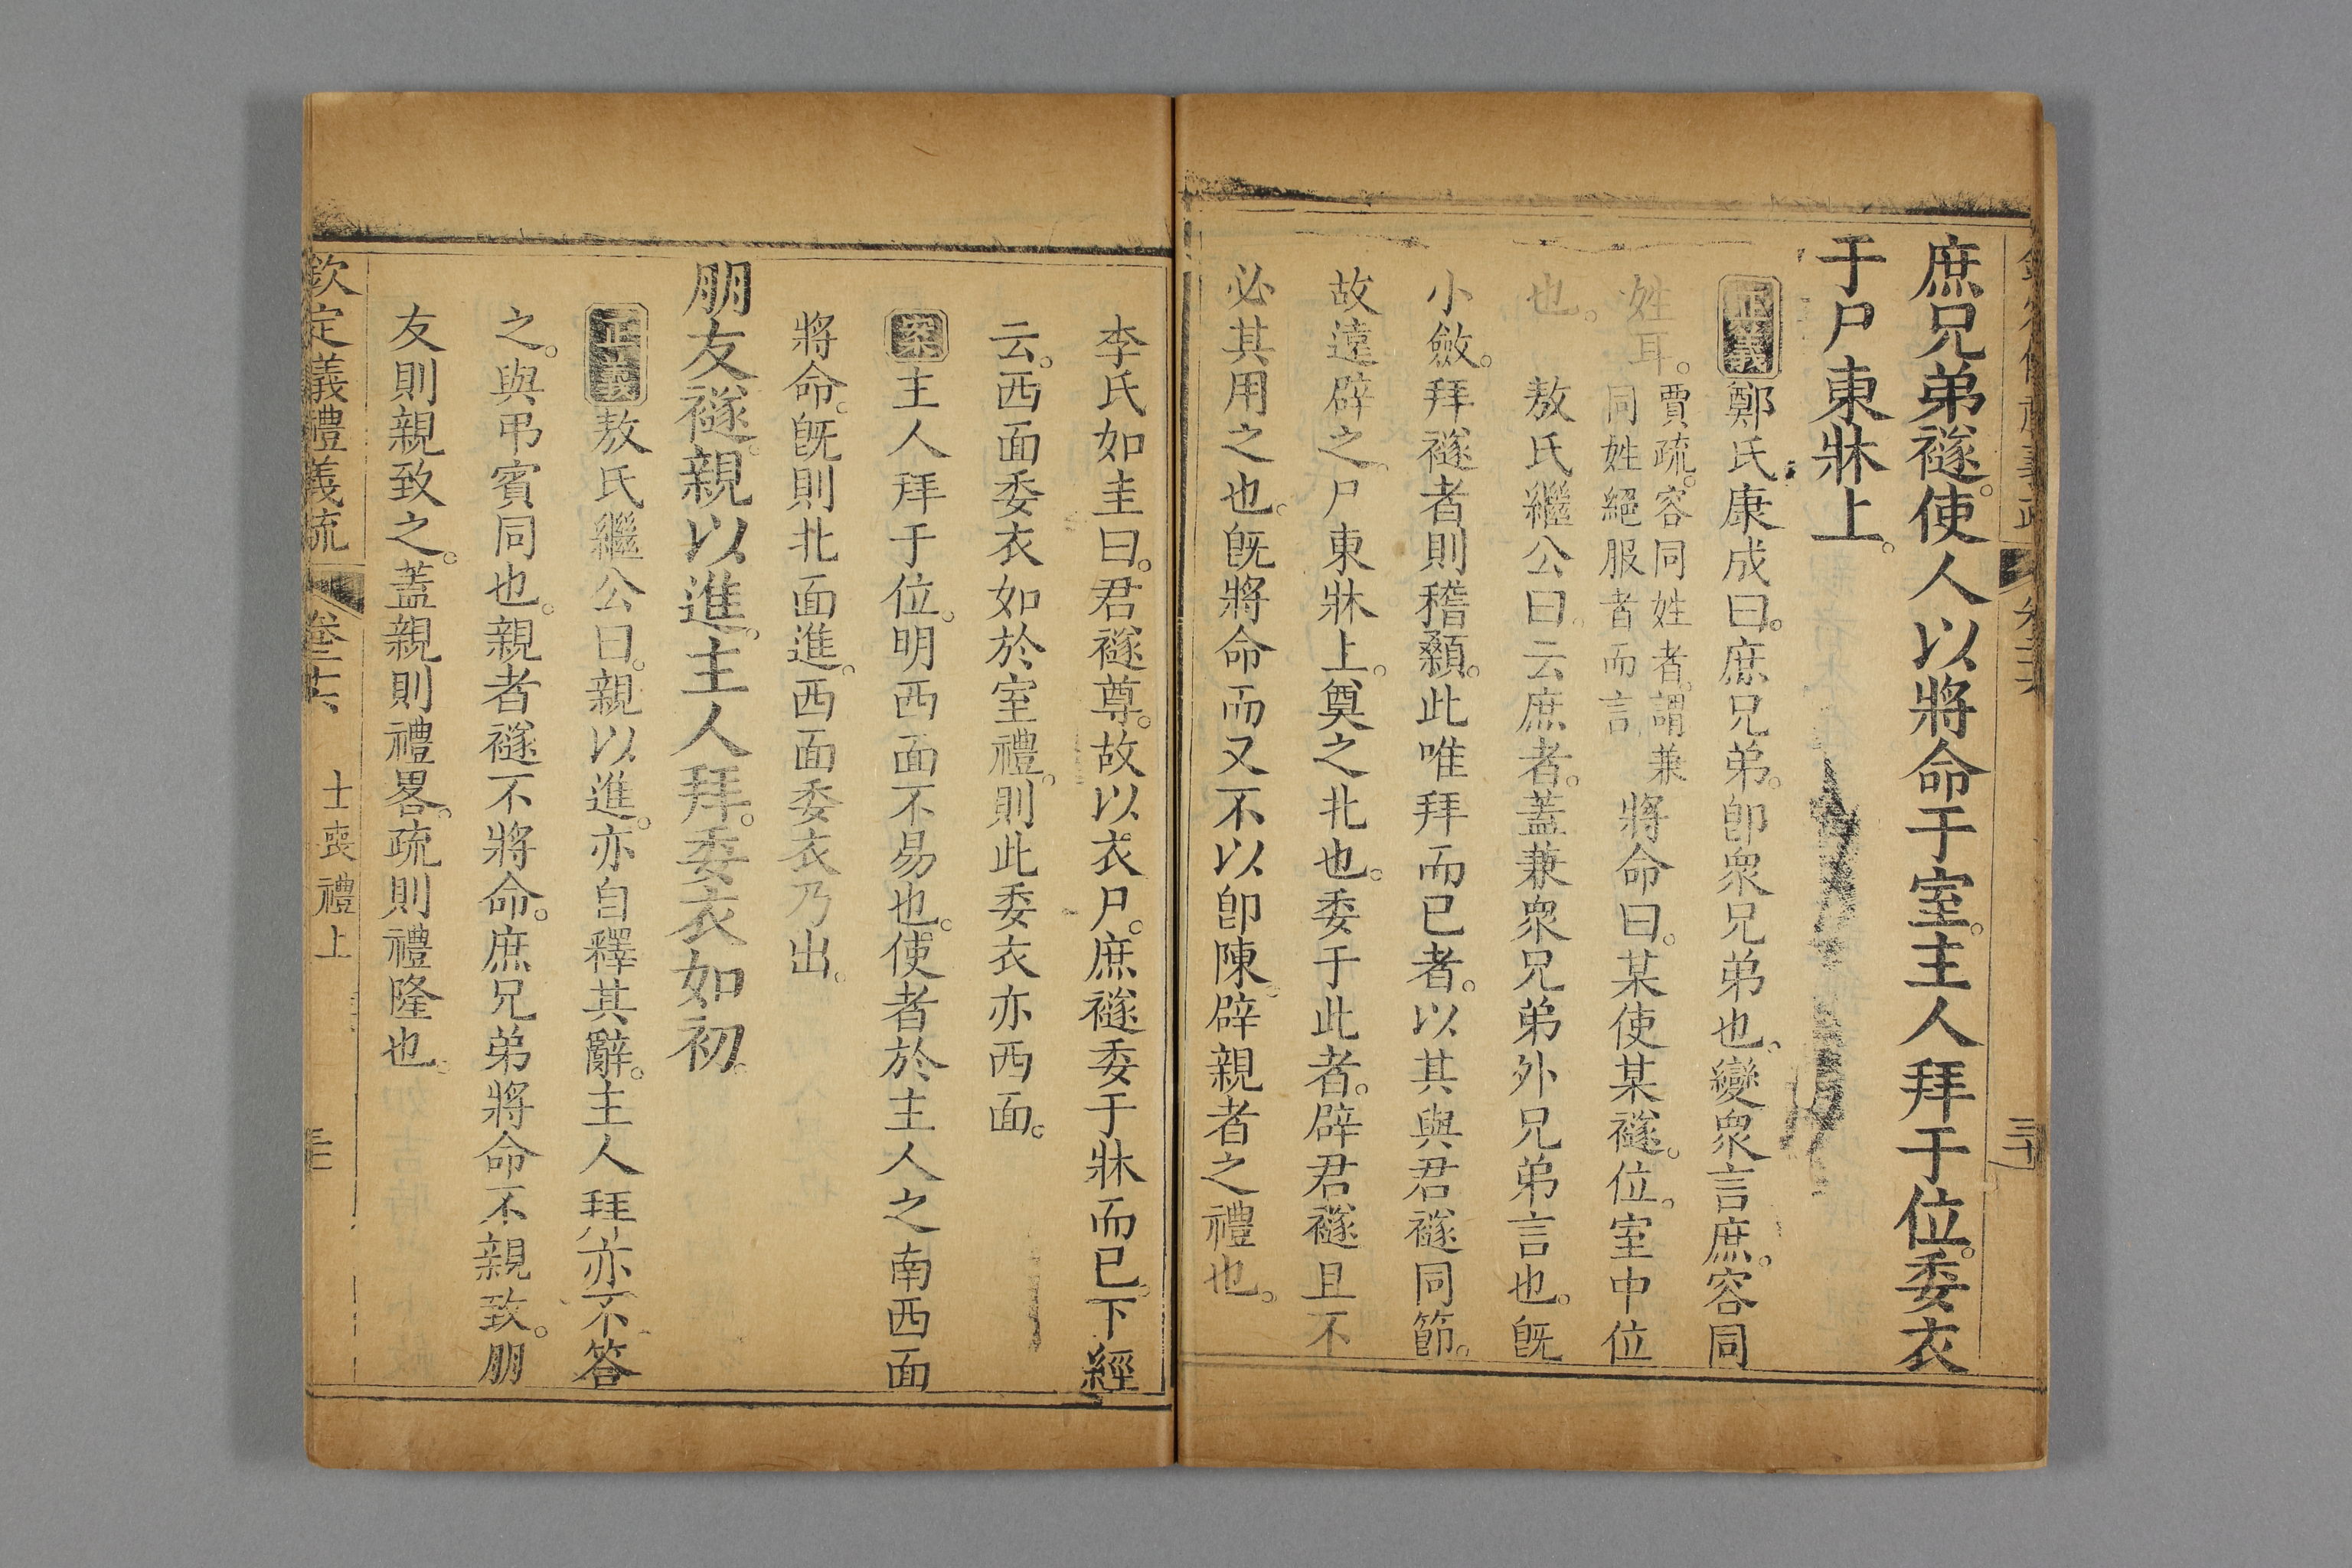 庶兄弟襚。使人以將命于室。主人拜于位。委衣
于尸東牀上。
正義鄭氏康成曰。庶兄弟。卽衆兄弟也。變衆言庶。容同
姓耳。賈疏。容同姓者。謂兼同姓絕服者而言 將命曰。某使某襚。位。室中位
也。 敖氏繼公曰。云庶者。蓋兼衆兄弟外兄弟言也。旣
小斂。拜襚者則稽顙。此唯拜而已者。以其與君襚同節。
故遠辟之。尸東牀上。奠之北也。委于此者。辟君襚且不
必其用之也。旣將命而又不以卽陳。辟親者之禮也。
李氏如圭曰。君襚尊。故以衣尸。庶襚委于牀而已。下經
云。西面委衣如於室禮。則此委衣亦西面。
案主人拜于位。明西面不易也。使者於主人之南西面
將命。旣則北面進。西面委衣乃出。
朋友襚。親以進。主人拜。委衣如初。
正義敖氏繼公曰。親以進。亦自釋其辭。主人拜。亦不答
之。與弔賓同也。親者襚不將命。庶兄弟將命不親致。朋
友則親致之。蓋親則禮畧。疏則禮隆也。
欽定儀禮義疏 卷二十六 士喪禮上